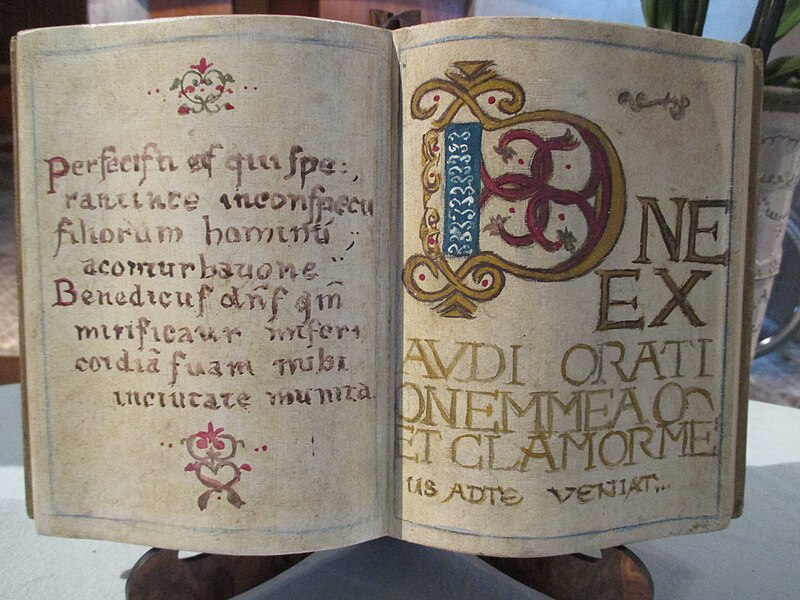 Perfecisti es qui spe:,
rantinte inconspectu
filiorum hominũ ;;
acomurbayone "
Benedictus dn̄s qm̄
mirificavr miseri
cordiã suam mihi
inciutate munita
DNE
EX
AVDI ORATI
ONEMMEA
ET CLAMORME
US ADTE VENIAT...